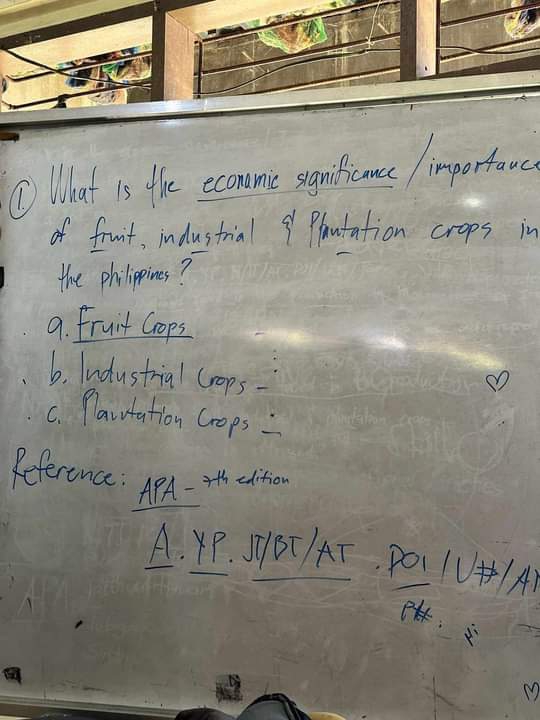 1. What is the economic significance / importance
of fruit, industrial & Plantation crops in
the philippines?
a. Fruit Crops
b. Industrial Crops -
c. Plantation Crops -
Reference: APA - 7th edition
A. YP. JT/BT/AT. DOI / V#/
P#: